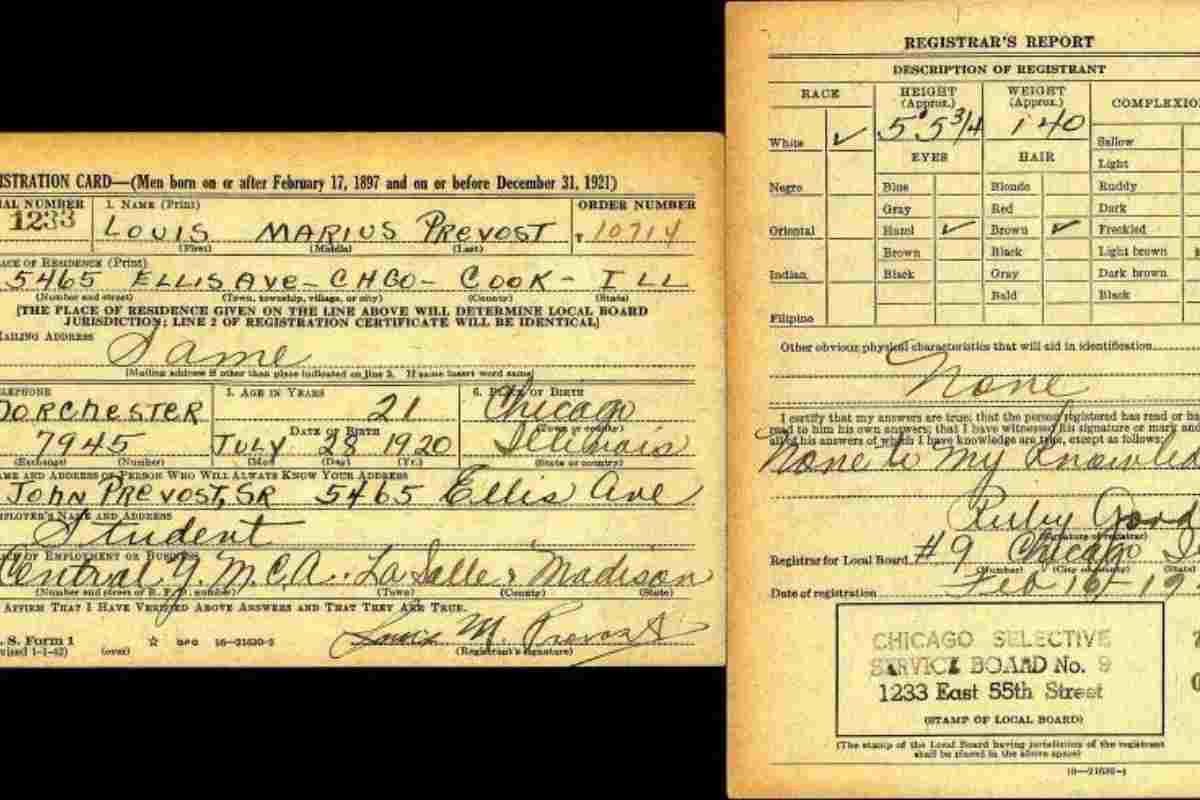 ISTRATION CARD—(Men born on or after February 17, 1897 and on or before December 31, 1921)
IAL NUMBER 1. NAME (Print) ORDER NUMBER
1233 LOUIS MARIUS PREVOST 10714
(First) (Middle) (Last)
ACE OF RESIDENCE (Print)
5465 ELLIS AVE - CHGO - COOK - ILL
(Number and street) (Town, township, village, or city) (County) (State)
[THE PLACE OF RESIDENCE GIVEN ON THE LINE ABOVE WILL DETERMINE LOCAL BOARD
JURISDICTION; LINE 2 OF REGISTRATION CERTIFICATE WILL BE IDENTICAL]
AILING ADDRESS
Same
[Mailing address if other than place indicated on line 2. If same insert word same]
ELEPHONE 5. AGE IN YEARS 6. PLACE OF BIRTH
DORCHESTER 21 Chicago
DATE OF BIRTH (Town or county)
7945 JULY 28 1920 Illinois
(Exchange) (Number) (Mo.) (Day) (Yr.) (State or country)
AME AND ADDRESS OF PERSON WHO WILL ALWAYS KNOW YOUR ADDRESS
JOHN PREVOST, SR 5465 Ellis Ave
MPLOYER'S NAME AND ADDRESS
Student
OF EMPLOYMENT OR BUSINESS
Central Y.M.C.A. La Salle & Madison
(Number and street or R. F. D. number) (Town) (County) (State)
AFFIRM THAT I HAVE VERIFIED ABOVE ANSWERS AND THAT THEY ARE TRUE.
. S. Form 1 GPO 16—21630-2 Louis M. Prevost
vised 1-1-42) (over) (Registrant's signature)
REGISTRAR'S REPORT
DESCRIPTION OF REGISTRANT
RACE HEIGHT (Approx.) WEIGHT (Approx.) COMPLEXIO
White ✓ 5' 5 3/4 140 Sallow
EYES HAIR Light
Negro Blue Blonde Ruddy
Gray Red Dark
Oriental Hazel ✓ Brown ✓ Freckled
Brown Black Light brown
Indian Black Gray Dark brown
Bald Black
Filipino
Other obvious physical characteristics that will aid in identification
None
I certify that my answers are true; that the person registered has read or ha
read to him his own answers; that I have witnessed his signature or mark and
all of his answers of which I have knowledge are true, except as follows:
None to My Knowled
Ruby
(Signature of registrar)
Registrar for Local Board #9 Chicago
(Number) (City or county) (State)
Date of registration Feb 16, 19
CHICAGO SELECTIVE
SERVICE BOARD No. 9
1233 East 55th Street
(STAMP OF LOCAL BOARD)
(The stamp of the Local Board having jurisdiction of the registrant
shall be placed in the above space)